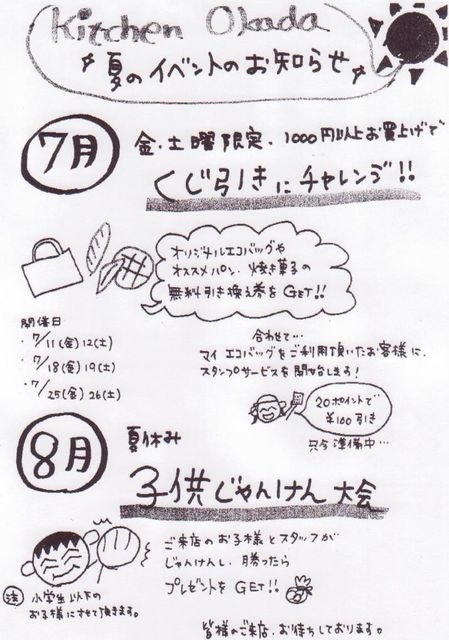 Kitchen Okada
夏のイベントのお知らせ
7月
金・土曜限定・1000円以上お買上げで
くじ引きにチャレンジ!!
オリジナルエコバッグや
オススメパン・焼き菓子の
無料引き換え券をGET!!
開催日
・7/11(金)12(土)
・7/18(金)19(土)
・7/25(金)26(土)
合わせて…
マイエコバッグをご利用頂いたお客様に、
スタンプサービスを開始します!
20ポイントで
¥100引き
只今準備中…
8月
夏休み
子供じゃんけん大会
ご来店のお子様とスタッフが
じゃんけんし、勝ったら
プレゼントをGET!!
注 小学生以下の
お子様にさせて頂きます。
皆様のご来店、お待ちしております。